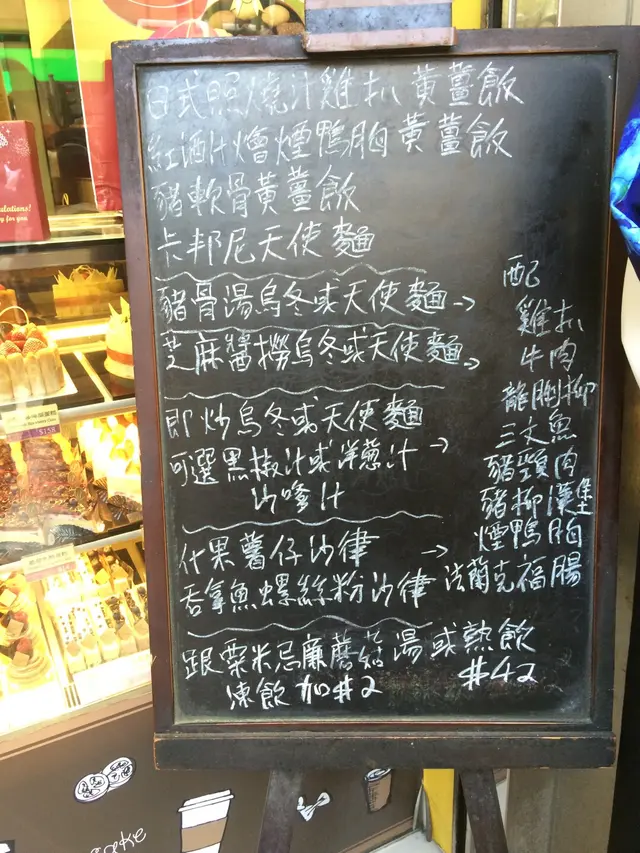 日式照燒汁雞扒黃薑飯
紅酒汁燴煙鴨胸黃薑飯
豬軟骨黃薑飯
卡邦尼天使麵
豬骨湯烏冬或天使麵→
芝麻醬撈烏冬或天使麵→
即炒烏冬或天使麵
可選黑椒汁或洋蔥汁→
沙嗲汁
什果薯仔沙律→
吞拿魚螺絲粉沙律
配
雞扒
牛肉
龍脷柳
三文魚
豬頸肉
豬柳漢堡
煙鴨胸
法蘭克福腸
跟粟米忌廉蘑菇湯或熱飲
凍飲加#2
#42
ulations!
for you
$158
Cake